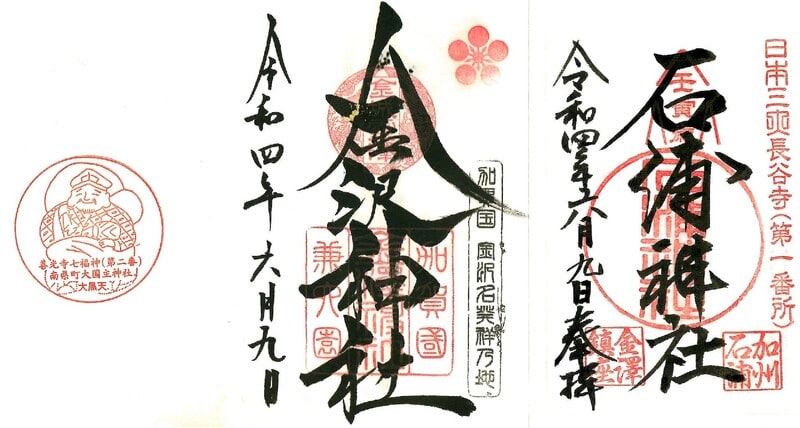 善光寺七福神(第二番)
南県町大国主神社
大黒天
加賀国 金沢名発祥乃地
金沢神社
加賀國
兼六園
令和四年 六月九日
日本三大長谷寺(第一番所)
石浦神社
加州
石浦
金澤
鎮座
令和四年六月九日奉拝